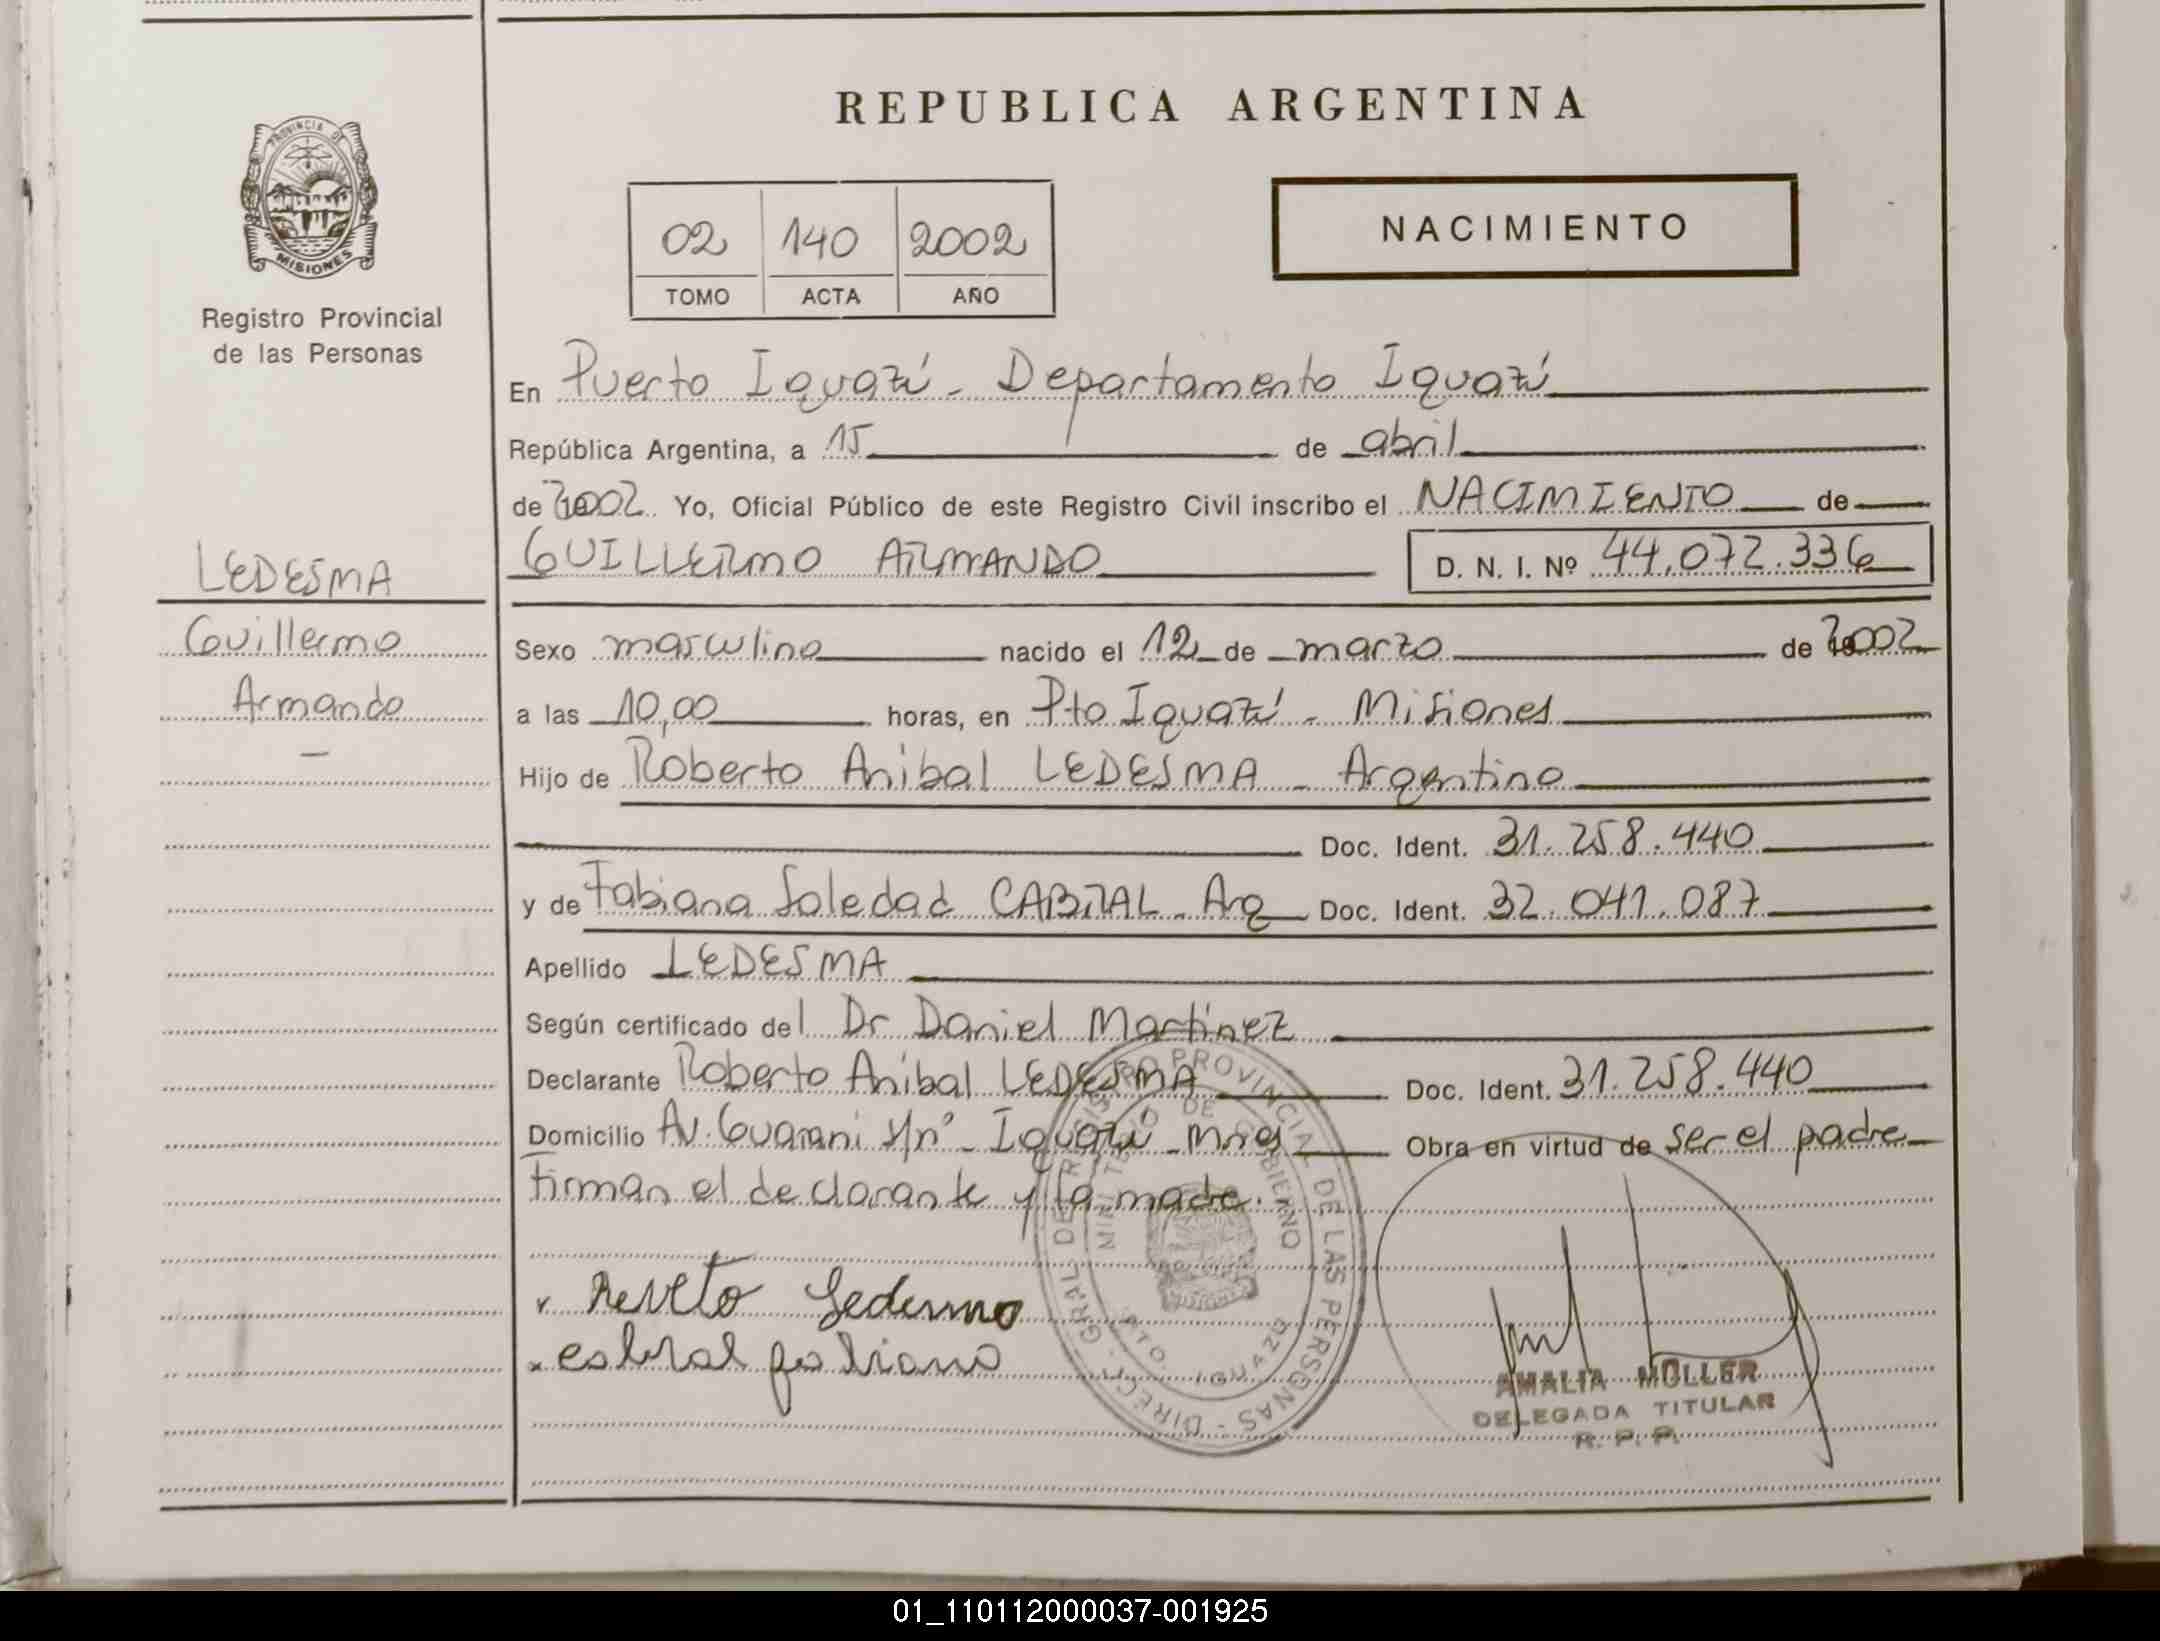 REPUBLICA ARGENTINA
PROVINCIA DE
MISIONES
Registro Provincial
de las Personas
02 140 2002
TOMO ACTA AÑO
NACIMIENTO
En Puerto Iguazú - Departamento Iguazú
República Argentina, a 15 de abril
de 2002 Yo, Oficial Público de este Registro Civil inscribo el NACIMIENTO de
GUILLERMO ARMANDO D. N. I. Nº 44.072.336
LEDESMA
Guillermo
Armando
-
Sexo masculino nacido el 12 de marzo de 2002
a las 10,00 horas, en Pto Iguazú - Misiones
Hijo de Roberto Anibal LEDESMA - Argentino
Doc. Ident. 31.258.440
y de Fabiana Soledad CABRAL - Arg Doc. Ident. 32.041.087
Apellido LEDESMA
Según certificado del Dr Daniel Martinez
Declarante Roberto Anibal LEDESMA Doc. Ident. 31.258.440
Domicilio Av. Guarani s/nº - Iguazú - Mnes Obra en virtud de ser el padre
firman el declarante y la madre.
Ledesma
cabral fabiana
DIRECC. GRAL. DE REGISTRO PROVINCIAL DE LAS PERSONAS
MINISTERIO DE GOBIERNO
PTO. IGUAZU
AMALIA MULLER
DELEGADA TITULAR
R. P. P.
01_110112000037-001925